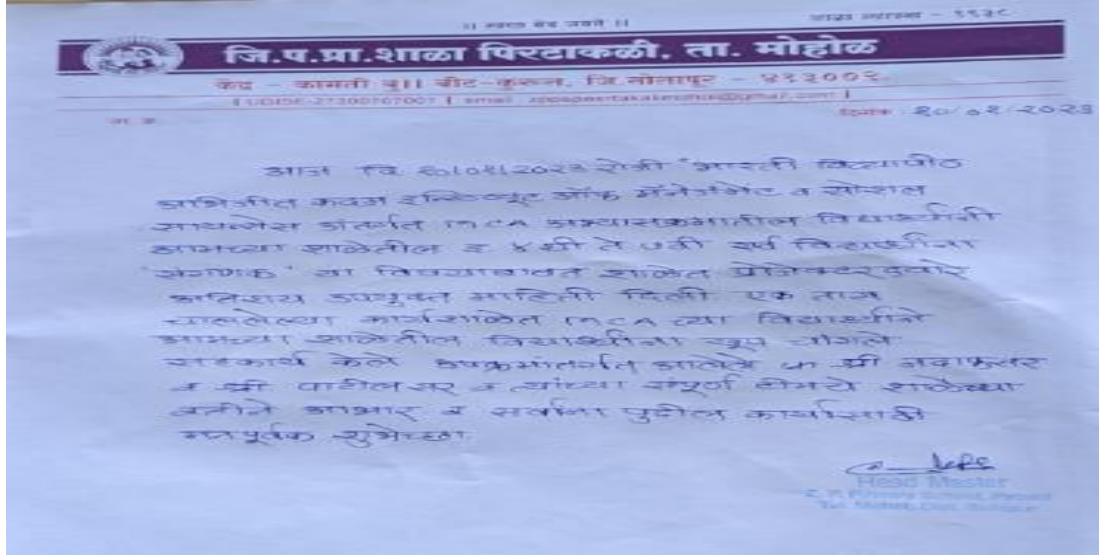 ।। स्वच्छ बंद जगते ।।
शाळा स्थापना - १९३८
जि.प.प्रा.शाळा पिरटाकळी, ता. मोहोळ
केंद्र - कामती बु।। बीट-कुरुल, जि.सोलापूर - ४१३००२
| UDISE-27300707001 | email
जा.क्र.
दिनांक : १०/०१/२०२३
आज दि. १०/०१/२०२३ रोजी "भारती विद्यापीठ
अभिजीत कदम इन्स्टिट्यूट ऑफ मॅनेजमेंट व सोशल
सायन्सेस अंतर्गत MCA अभ्यासक्रमातील विद्यार्थ्यांनी
आमच्या शाळेतील इ ४थी ते ७वी सर्व विद्यार्थ्यांना
'संगणक' या विषयाबाबत शाळेत प्रोजेक्टरद्वारे
अतिशय उपयुक्त माहिती दिली एक तास
चाललेल्या कार्यशाळेत MCA च्या विद्यार्थ्यांने
आमच्या शाळेतील विद्यार्थ्यांना खूप चांगले
सहकार्य केले उपक्रमांतर्गत आलेले प्रा श्री नदाफसर
व श्री पाटील सर व त्यांच्या संपूर्ण टीमचे शाळेच्या
वतीने आभार व सर्वांना पुढील कार्यासाठी
मनःपूर्वक शुभेच्छा
Head Master
Z. P. Primary School,
Tal. Mohol, Dist. Solapur